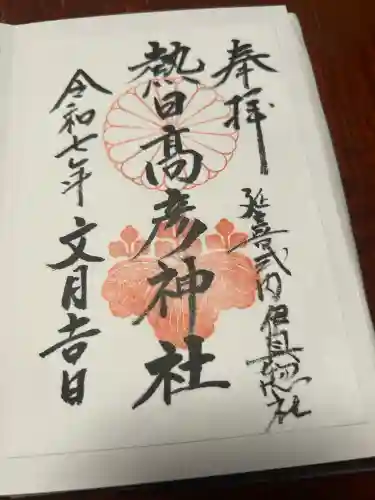 奉拝
延喜式内伊具惣社
熱日高彦神社
令和七年
文月吉日